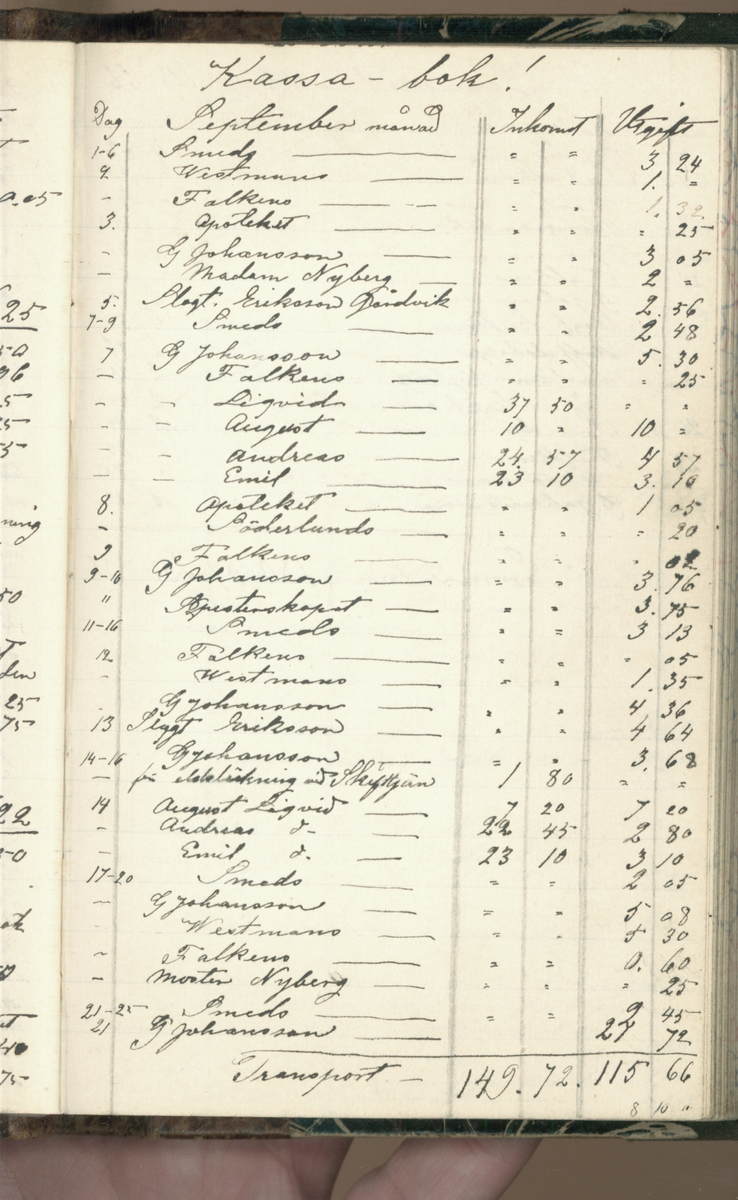 Kassa-bok!
Dag September månad Inkomst Utgift
1-6 Smeds — " " 3 24
2 Westmans — " " 1. "
- Falkens — " " 1. 32
3. Apoteket — " " " 25
- G Johansson — " " 3 05
- Madam Nyberg — " " 2 "
5. Slagt. Eriksson Gårdvik " " 2. 56
7-9 Smeds — " " 2 48
7 G Johansson — " " 5. 30
- Falkens — " " " 25
- - Liqvid — 37 50 " "
- - August — 10 " 10 "
- - Andreas — 24. 57 4 57
- - Emil — 23 10 3. 10
8. Apoteket — " " 1 05
- Söderlunds — " " " 20
9 Falkens — " " "
9-16 G Johansson — " " 3. 76
" — " " 3. 75
11-16 Smeds — " " 3 13
12 Falkens — " " " 05
- Westmans — " " 1. 35
- G Johansson — " " 4 36
13 Slagt Eriksson — " " 4 64
14-16 G Johansson — " " 3. 68
- för eldsläckning vid 1 80 " "
14 August Liqvid — 7 20 7 20
- Andreas d- — 22 45 2 80
- Emil d. — 23 10 3 10
17-20 Smeds — " " 2 05
- G Johansson — " " 5 08
- Westmans — " " 5 30
- Falkens — " " 0. 60
- Moster Nyberg — " " " 25
21-25 Smeds — " " 2 45
21 G Johansson — 27 72
Transport — 149. 72. 115 66
8 10 "